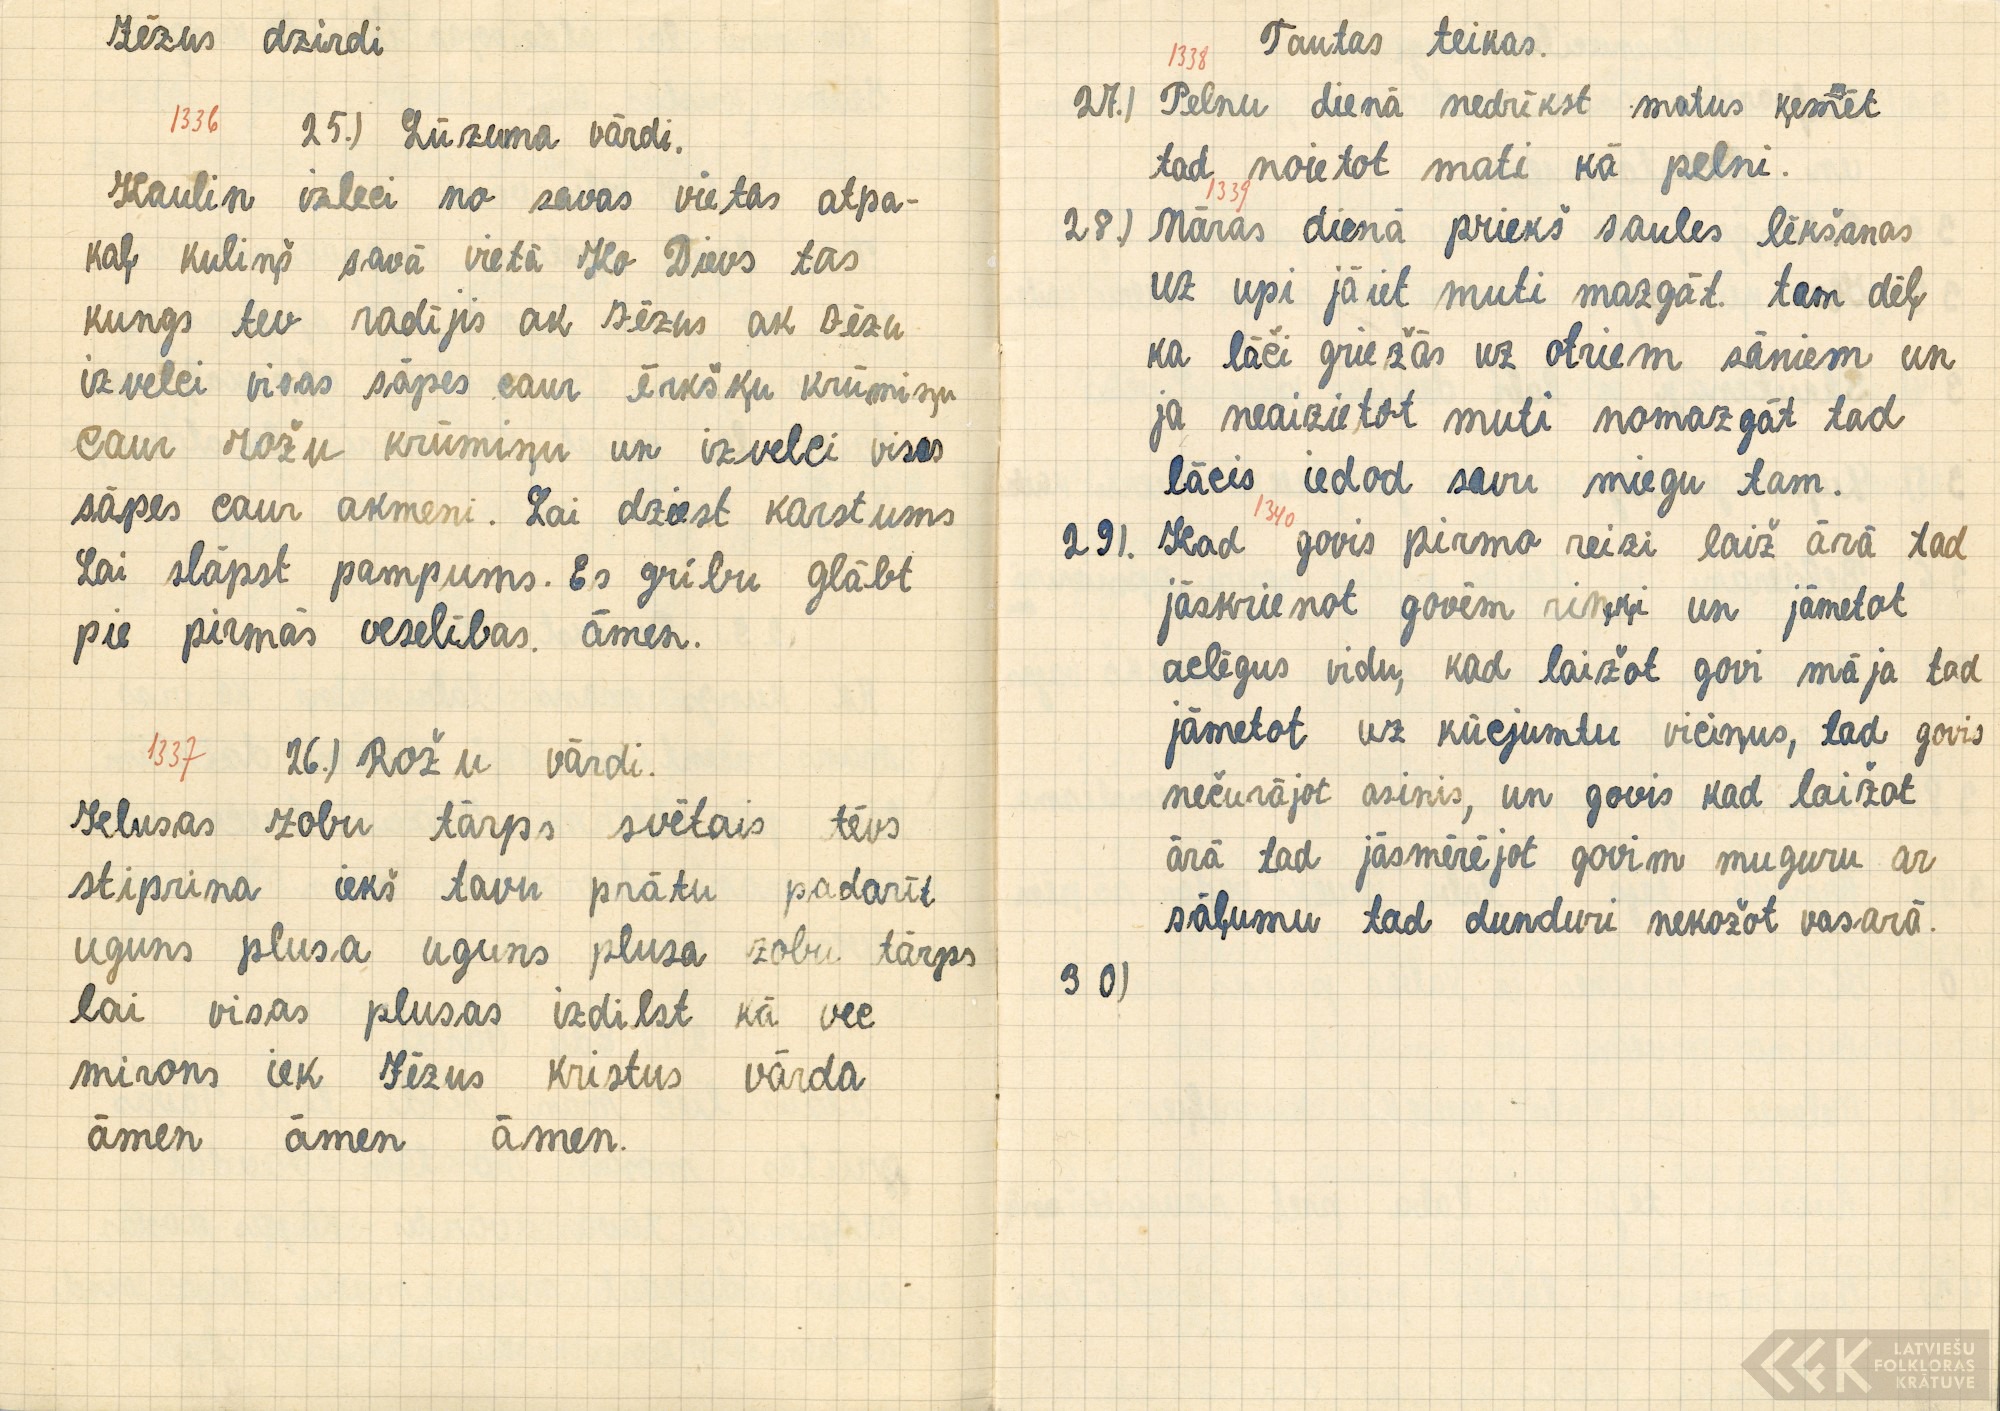 Jēzus dzirdi
1336 25.) Lūzuma vārdi.
Kaulin izleci no savas vietas atpa-
kaļ kuliņš savā vietā Ko Dievs tas
kungs tev radījis ak Jēzus ak Jēzu
izvelci visas sāpes caur ērkšķu krūmiņu
caur rožu krūmiņu un izvelci visas
sāpes caur akmeni. Lai dziest karstums
Lai slāpst pampums. Es gribu glābt
pie pirmās veselības. āmen.
1337 26.) Rožu vārdi.
Ielusas zobu tārps svētais tēvs
stiprina iekš tavu prātu padarīt
uguns plusa uguns plusa zobu tārps
lai visas plusas izdilst kā vec
mirons iek Jēzus kristus vārda
āmen āmen āmen.
Tautas teikas.
1338
27.) Pelnu dienā nedrīkst matus ķemmēt
tad noietot mati kā pelni.
1339
28.) Māras dienā priekš saules lēkšanas
uz upi jāiet muti mazgāt. tam dēļ
ka lāči griežās uz otriem sāniem un
ja neaizietot muti nomazgāt tad
lācis iedod savu miegu tam.
1340
29). Kad govis pirmo reizi laiž ārā tad
jāskrienot govēm riņķi un jāmetot
aclēgus vidu, kad laižot govi māja tad
jāmetot uz kūcjumtu viciņus, tad govis
nečurājot asinis, un govis kad laižot
ārā tad jāsmērējot govim muguru ar
sāļumu tad dunduri nekožot vasarā.
30)
LATVIEŠU
FOLKLORAS
KRĀTUVE